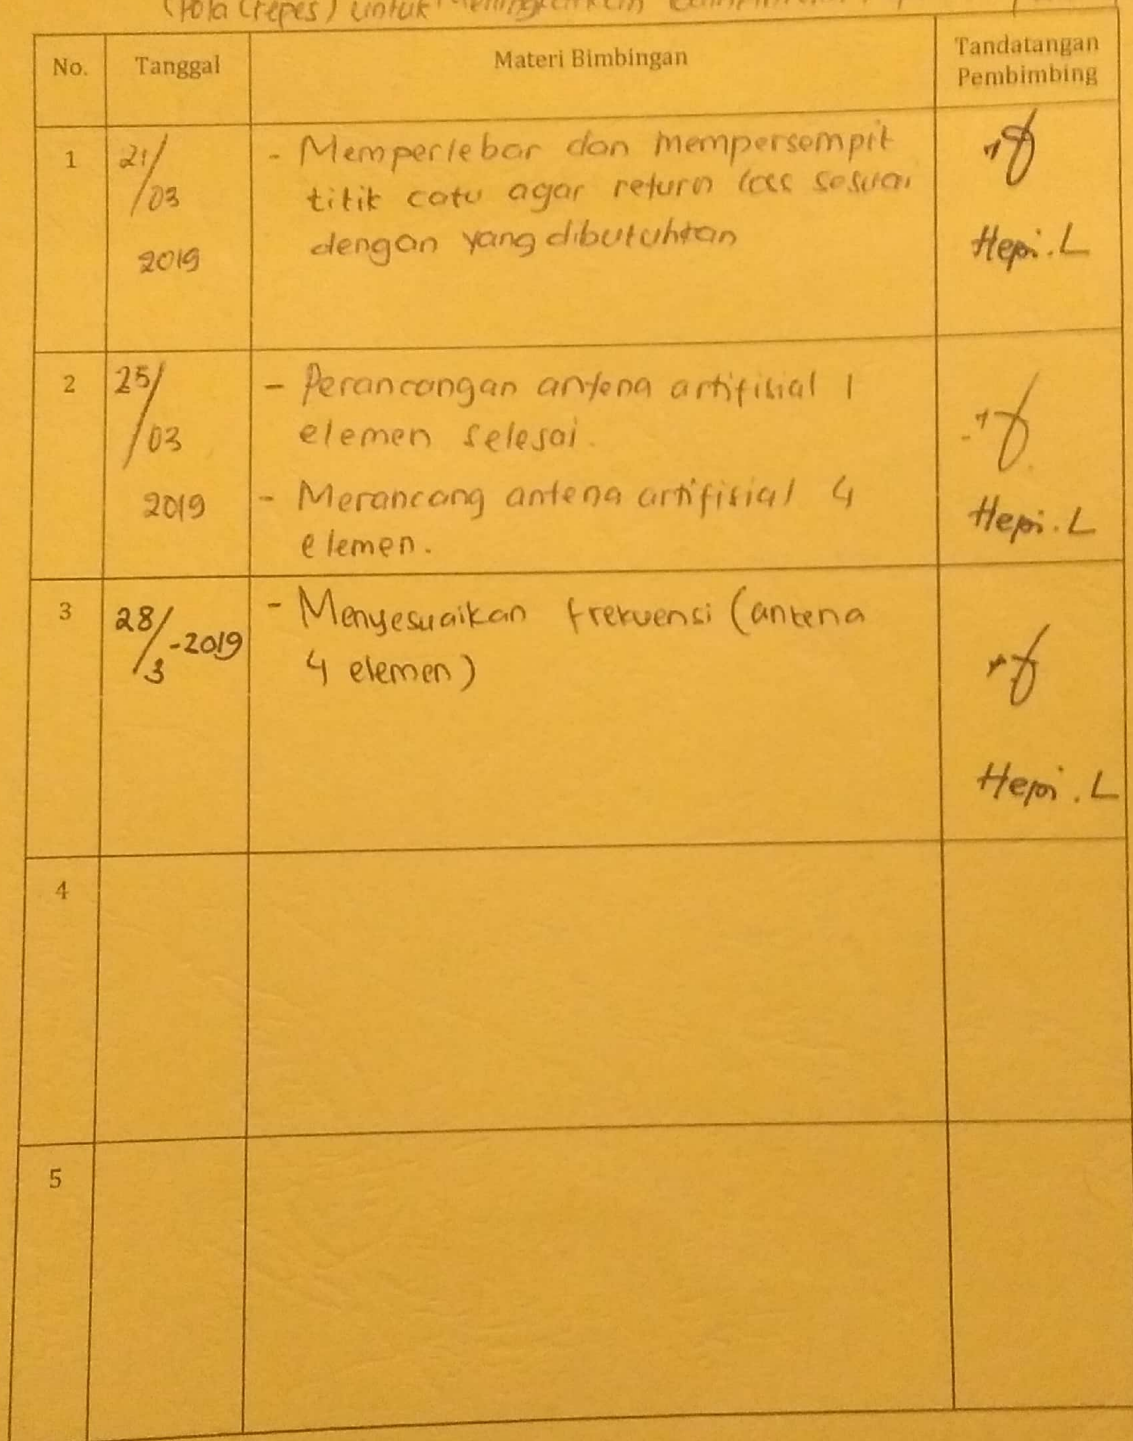 (Pola Crepes) untuk Meningkatkan
No. Tanggal Materi Bimbingan Tandatangan
Pembimbing
1 21/03 - Memperlebar dan mempersempit
titik catu agar return loss sesuai
2019 dengan yang dibutuhkan Hepi.L
2 25/03 - Perancangan antena artifisial 1
elemen selesai.
2019 - Merancang antena artifisial 4 Hepi.L
elemen.
3 28/3-2019 - Menyesuaikan frekuensi (antena
4 elemen)
Hepi.L
4
5